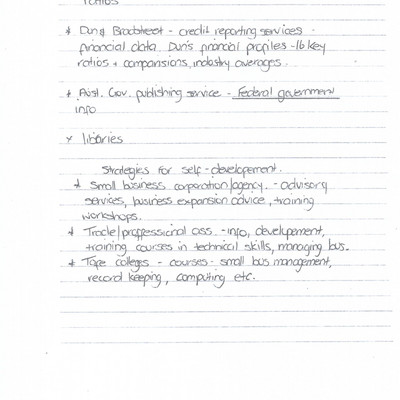 ratios
* Dun & Bradstreet - credit reporting services.
financial data. Dun's financial profiles - 16 key
ratios + comparisions, industry averages.
* Aust. Gov. publishing service - Federal government
info
* libraries
Strategies for self-developement.
* Small business corporation/agency. - advisory
services, business expansion advice, training
workshops.
* Trade/proffessional ass. - info, developement,
training courses in technical skills, managing bus.
* Tape colleges - courses - small bus management,
record keeping, computing etc.